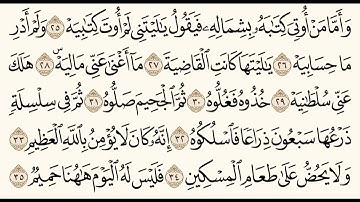 وَأَمَّا مَنْ أُوتِيَ كِتَٰبَهُۥ بِشِمَالِهِۦ فَيَقُولُ يَٰلَيْتَنِى لَمْ أُوتَ كِتَٰبِيَهْ ٢٥ وَلَمْ أَدْرِ
مَا حِسَابِيَهْ ٢٦ يَٰلَيْتَهَا كَانَتِ ٱلْقَاضِيَةَ ٢٧ مَآ أَغْنَىٰ عَنِّى مَالِيَهْ ۜ ٢٨ هَلَكَ
عَنِّى سُلْطَٰنِيَهْ ٢٩ خُذُوهُ فَغُلُّوهُ ٣٠ ثُمَّ ٱلْجَحِيمَ صَلُّوهُ ٣١ ثُمَّ فِى سِلْسِلَةٍ
ذَرْعُهَا سَبْعُونَ ذِرَاعًا فَٱسْلُكُوهُ ٣٢ إِنَّهُۥ كَانَ لَا يُؤْمِنُ بِٱللَّهِ ٱلْعَظِيمِ ٣٣
وَلَا يَحُضُّ عَلَىٰ طَعَامِ ٱلْمِسْكِينِ ٣٤ فَلَيْسَ لَهُ ٱلْيَوْمَ هَٰهُنَا حَمِيمٌ ٣٥